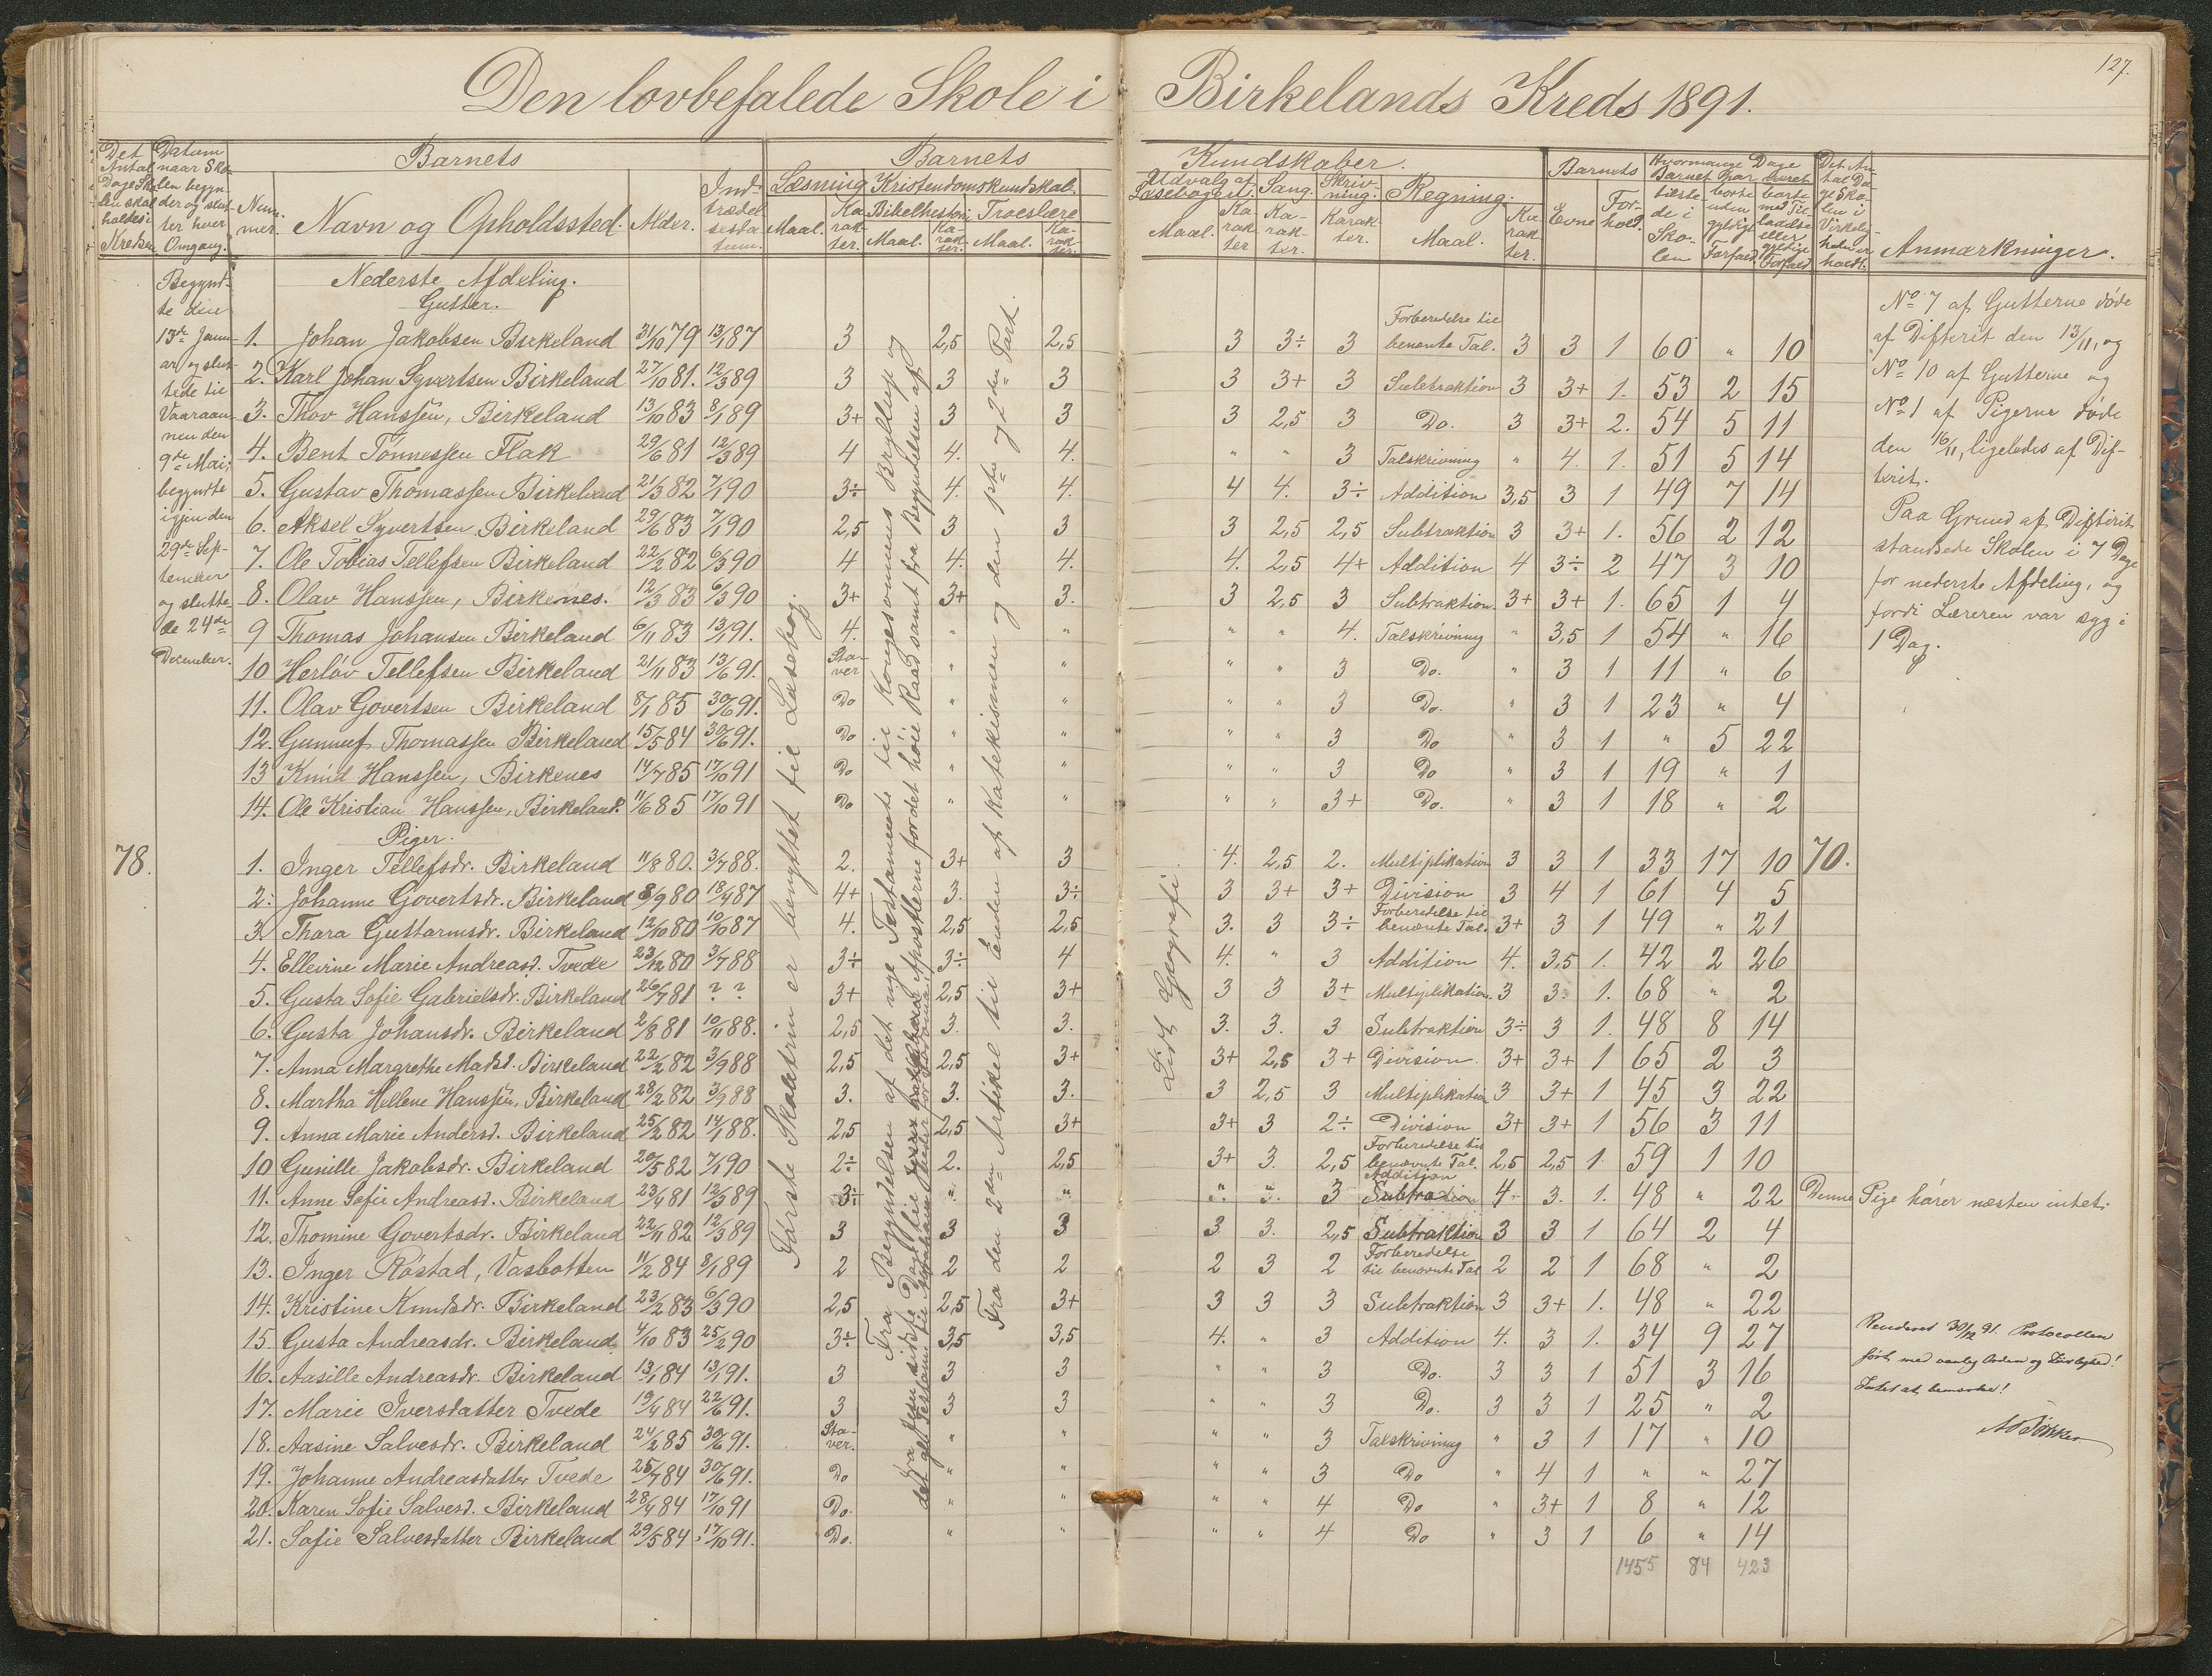 127.
Den lovbefalede Skole i Birkelands Kreds 1891.
Det Antal Dage Skolen skal holdes i Kredsen
Datum naar Skolen begynder og slutter hver Omgang.
Nummer.
Barnets
Navn og Opholdssted. Alder. Indtrædelsesdatum.
Barnets Kundskaber.
Læsning Maal. Karakter.
Kristendomskundskab.
Bibelhistorie Maal. Karakter. Troeslære Maal. Karakter.
Udvalg af Læsebogen. Maal. Karakter
Sang. Karakter.
Skrivning. Karakter.
Regning. Maal. Karakter.
Barnets Evne Forhold.
Hvormange Dage Barnet har
møtt i Skolen
borte uden gyldigt Forfald.
borte med Tilladelse eller gyldigt Forfald
Det Antal Dage Skolen i Virkeligheden er holdt.
Anmærkninger.
Begyndte den
13de Januar og sluttede til
Vaaraannen den
9de Mai;
begyndte
igjen den
29de September
og sluttede 24de
December.
78.
Første Skoletrin er benyttet til Læsebog.
Fra Begyndelsen af det nye Testamente til Kongesønnens Bryllup og
fra Jesu sidste Dag til
Apostlerne for det høie Raad samt fra Begyndelsen af
det gl. Testam. til Abraham
Fra den 2den Artikel til Enden af Katekismen og den 1ste og 2den Part.
Lidt Geografi
Nederste Afdeling.
Gutter.
1. Johan Jakobsen Birkeland 31/10 79 13/1 87 3 2,5 2,5 3 3÷ 3 Forberedelse til benævnte Tal. 3 3 1 60 " 10
2. Karl Johan Syvertsen Birkeland 27/10 81. 12/3 89 3 3 3 3 3+ 3 Subtraktion 3 3+ 1. 53 2 15
3. Thov Hanssen, Birkeland 13/10 83 8/1 89 3+ 3 3 3 2,5 3 Do. 3 3+ 2. 54 5 11
4. Bent Tönnessen Flak 29/6 81 12/3 89 4 4. 4. " " 3 Talskrivning " 4. 1. 51 5 14
5. Gustav Thomassen Birkeland 21/3 82 7/1 90 3÷ 4. 4. 4 4. 3÷ Addition 3,5 3 1 49 7 14
6. Aksel Syvertsen Birkeland 29/6 83 7/1 90 2,5 3 3 3 2,5 2,5 Subtraktion 3 3+ 1. 56 2 12
7. Ole Tobias Tellefsen Birkeland 22/2 82 6/3 90 4 4. 4. 4. 2,5 4+ Addition 4 3÷ 2 47 3 10
8. Olav Hanssen, Birkenes. 12/3 83 6/3 90 3+ 3+ 3. 3 2,5 3 Subtraktion. 3+ 3+ 1. 65 1 4
9 Thomas Johansen Birkeland 6/11 83 13/1 91. 4. " " " " 4. Talskrivning " 3,5 1 54 " 16
10 Herløv Tellefsen Birkeland 21/11 83 13/6 91. Staver " " " " 3 Do. " 3 1 11 " 6
11. Olav Govertsen Birkeland 8/1 85 30/6 91. Do " " " " 3 Do. " 3 1 23 " 4
12. Gunnuf Thomassen Birkeland 15/5 84 30/6 91. Do " " " " 3 Do " 3 1 " 5 22
13 Knud Hanssen, Birkenes 14/7 85 17/10 91 Do " " " " 3 Do " 3 1 19 " 1
14. Ole Kristian Hanssen, Birkeland. 11/6 85 17/10 91 Do " " " " 3+ Do. " 3 1 18 " 2
Piger.
1. Inger Tellefsdr. Birkeland 11/8 80. 3/7 88. 2. 3+ 3 4. 2,5 2. Multiplikation 3 3 1 33 17 10 70.
2. Johanne Govertsdr. Birkeland 8/9 80 18/4 87 4+ 3. 3÷ 3 3+ 3+ Division 3 4 1 61 4 5
3. Thora Guttormsdr. Birkeland 12/10 80 10/10 87 4. 2,5 2,5 3. 3 3÷ Forberedelse til benævnte Tal. 3+ 3 1 49 " 21
4. Ellevine Marie Andreasd. Tvede 23/12 80 3/7 88 3÷ 3÷ 4 4. " 3 Addition 4. 3,5 1. 42 2 26
5. Gusta Sofie Gabrielsdr. Birkeland 26/7 81 ? ? 3+ 2,5 3+ 3 3 3+ Multiplikation. 3 3. 1. 68 " 2
6. Gusta Johansdr. Birkeland 2/8 81 10/11 88. 2,5 3. 3. 3. 3. 3 Subtraktion 3÷ 3 1. 48 8 14
7. Anna Margrethe Matsd. Birkeland 22/2 82 3/9 88 2,5 2,5 3+ 3+ 2,5 3+ Division. 3+ 3+ 1 65 2 3
8. Martha Hellene Hanssen, Birkeland 28/2 82 3/9 88 3. 3. 3. 3 2,5 3 Multiplikation 3 3+ 1 45 3 22
9. Anna Marie Andersd. Birkeland 25/2 82 14/1 88. 2,5 2,5 3+ 3+ 3 2÷ Division 3+ 3+ 1 56 3 11
10 Gunille Jakobsdr. Birkeland 20/5 82 7/1 90 2÷ 2. 2,5 3+ 3. 2,5 Forberedelse til benævnte Tal. 2,5 2,5 1 59 1 10
11. Anne Sofie Andreasd. Birkeland 23/4 81 12/3 89 3÷ " " " " 3 Addition Subtraktion 4 3. 1. 48 " 22 Denne Pige hører næsten intet.
12. Thomine Govertsdr. Birkeland 22/11 82 12/3 89 3 3 3 3 3. 2,5 Subtraktion 3 3 1 64 2 4
13. Inger Röstad, Vasbotten 11/2 84 8/1 89 2 2 2 2 3 2 Forberedelse til benævnte Tal 2 2 1 68 " 2
14. Kristine Knudsdr. Birkeland 23/2 83 6/3 90 2,5 2,5 3+ 3 3 3 Subtraktion 3 3+ 1. 48 " 22
15. Gusta Andreasdr. Birkeland. 4/10 83 25/2 90 3÷ 3,5 3,5 4. " 3 Addition 4. 3 1. 34 9 27
16. Aasille Andreasdr. Birkeland 13/1 84 13/1 91. 3 3 3 " " 3 Do. 3 3 1 51 3 16
17. Marie Iversdatter Tvede 19/4 84 22/6 91. 3 3 3 " " 3 Do. 3 3 1 25 " 2
18. Aasine Salvesdr. Birkeland 24/2 85 30/6 91. Staver. " " " " 3 Talskrivning " 3 1 17 " 10
19. Johanne Andreasdatter Tvede 25/7 84 30/6 91. Do " " " " 3 Do " 4 1 " " 27
20. Karen Sofie Salvesd. Birkeland 28/4 84 17/10 91 Do. " " " " 4 Do " 3+ 1 8 " 12
21. Sofie Salvesdatter Birkeland 29/5 84 17/10 91. Do. " " " " 4 Do " 3 1 6 " 14
1455 84 423
No 7 af Gutterne døde
af Difterit den 13/11, og
No 10 af Gutterne og
No 1 af Pigerne døde
den 16/11, ligeledes af Difterit.
Paa Grund af Difterit
standsede Skolen i 7 Dage
for nederste Afdeling, og
fordi Læreren var syg i
1 Dag.
Revideret 30/12 91. Protocollen
ført med vanlig Orden og
Intet at bemærke!